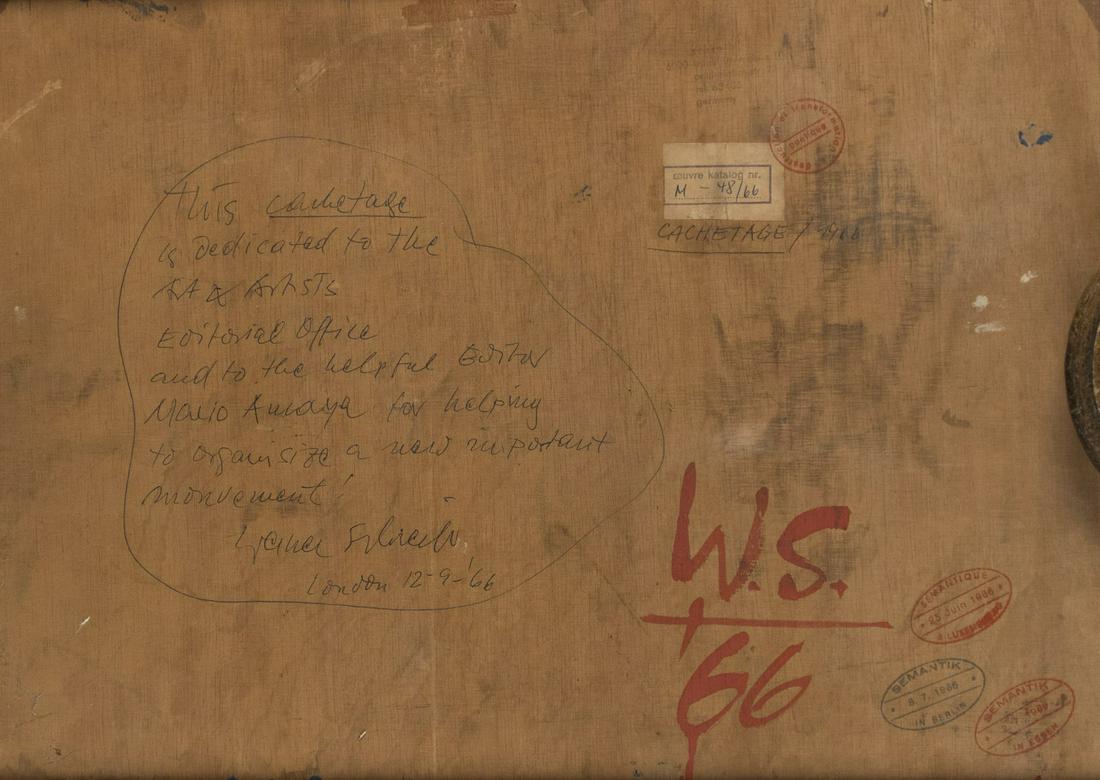 This cachetage
is Dedicated to the
Art & Artists
Editorial Office
and to the helpful Editor
Mario Amaya for helping
to organisize a new important
monvement!
London 12-9-'66
germany
destruction et transformation
poétique
œuvre katalog nr.
M - 48/66
CACHETAGE / 1966
W.S.
'66
SEMANTIQUE
25 Juin 1966
à LUXEMBOURG
SEMANTIK
8. 7. 1966
IN BERLIN
SEMANTIK
IN ESSEN